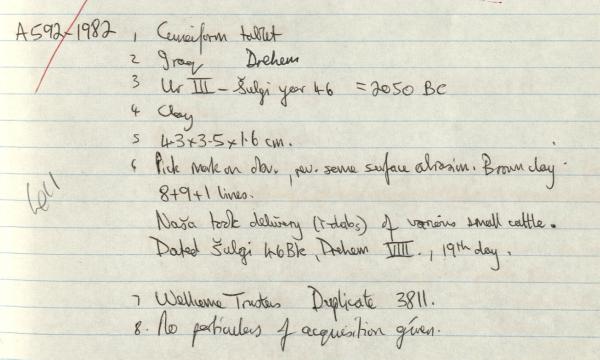 A592-1982 1 Cuneiform tablet
2 Iraq Drehem
3 Ur III – Šulgi year 46 = 2050 BC
4 Clay
5 4.3 x 3.5 x 1.6 cm.
6 Pick mark on obv., rev. some surface abrasion. Brown clay.
8+9+1 lines.
Naša took delivery (ì-dab5) of various small cattle.
Dated Šulgi 46 , Drehem VIII., 19th day.
7 Wellcome Trustees Duplicate 3811.
8. No particulars of acquisition given.